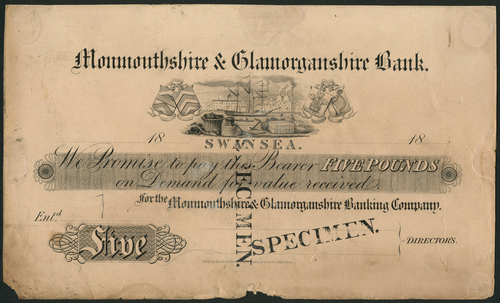 Monmouthshire & Glamorganshire Bank.
18 18
SWANSEA.
We Promise to pay the Bearer FIVE POUNDS
on Demand for value received
For the Monmouthshire & Glamorganshire Banking Company.
Entd
Five
SPECIMEN.
SPECIMEN.
DIRECTORS.